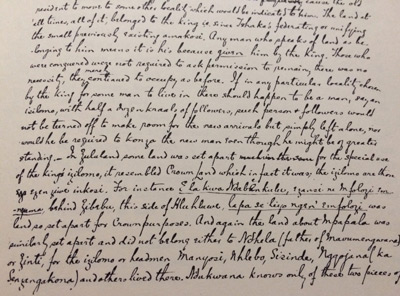 resident to move to some other locality which would be indicated to him. The land at
all times, all of it, belonged to the king i.e. since Tshaka's federating or unifying
the small previously existing amakosi. Any man who speaks of land as be-
longing to him means it is his because given him by the king. Those who
were conquered were not required to ask permission to remain, there was no
necessity, they merely continued to occupy as before. If in any particular locality chosen
by the king for some man to live in there should happen to be a man, say, an
isilomo, with half a dozen kraals of followers, such person & followers would
not be turned off to make room for the new arrivals but simply left alone, nor
would he be required to konza the new man even though he might be of greater
standing. – In Zululand some land was set apart for the special use
of the king's izilomo, it resembled Crown land which in fact it was; the izilomo are then
eziwe inkosi. For instance E la kwa Ndabankulu,
behind Zibebu, this side of Hluhluwe, lapa se liya ngeri Umfolozi was
land so set apart for Crown purposes. And again the land about Mpapala was
similarly set apart and did not belong either to Ndhlela (father of Mavumengwana)
or Zinti, for the izilomo or headmen Manyosi, Nhlebo, Sisinde, Nqojana (ka
Senzangakona) and others lived there. Mukwana knows only of these two pieces of